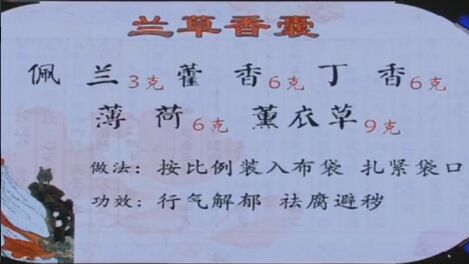 兰草香囊
佩兰3克 藿香6克 丁香6克
薄荷6克 薰衣草9克
做法：按比例装入布袋 扎紧袋口
功效：行气解郁 祛腐避秽